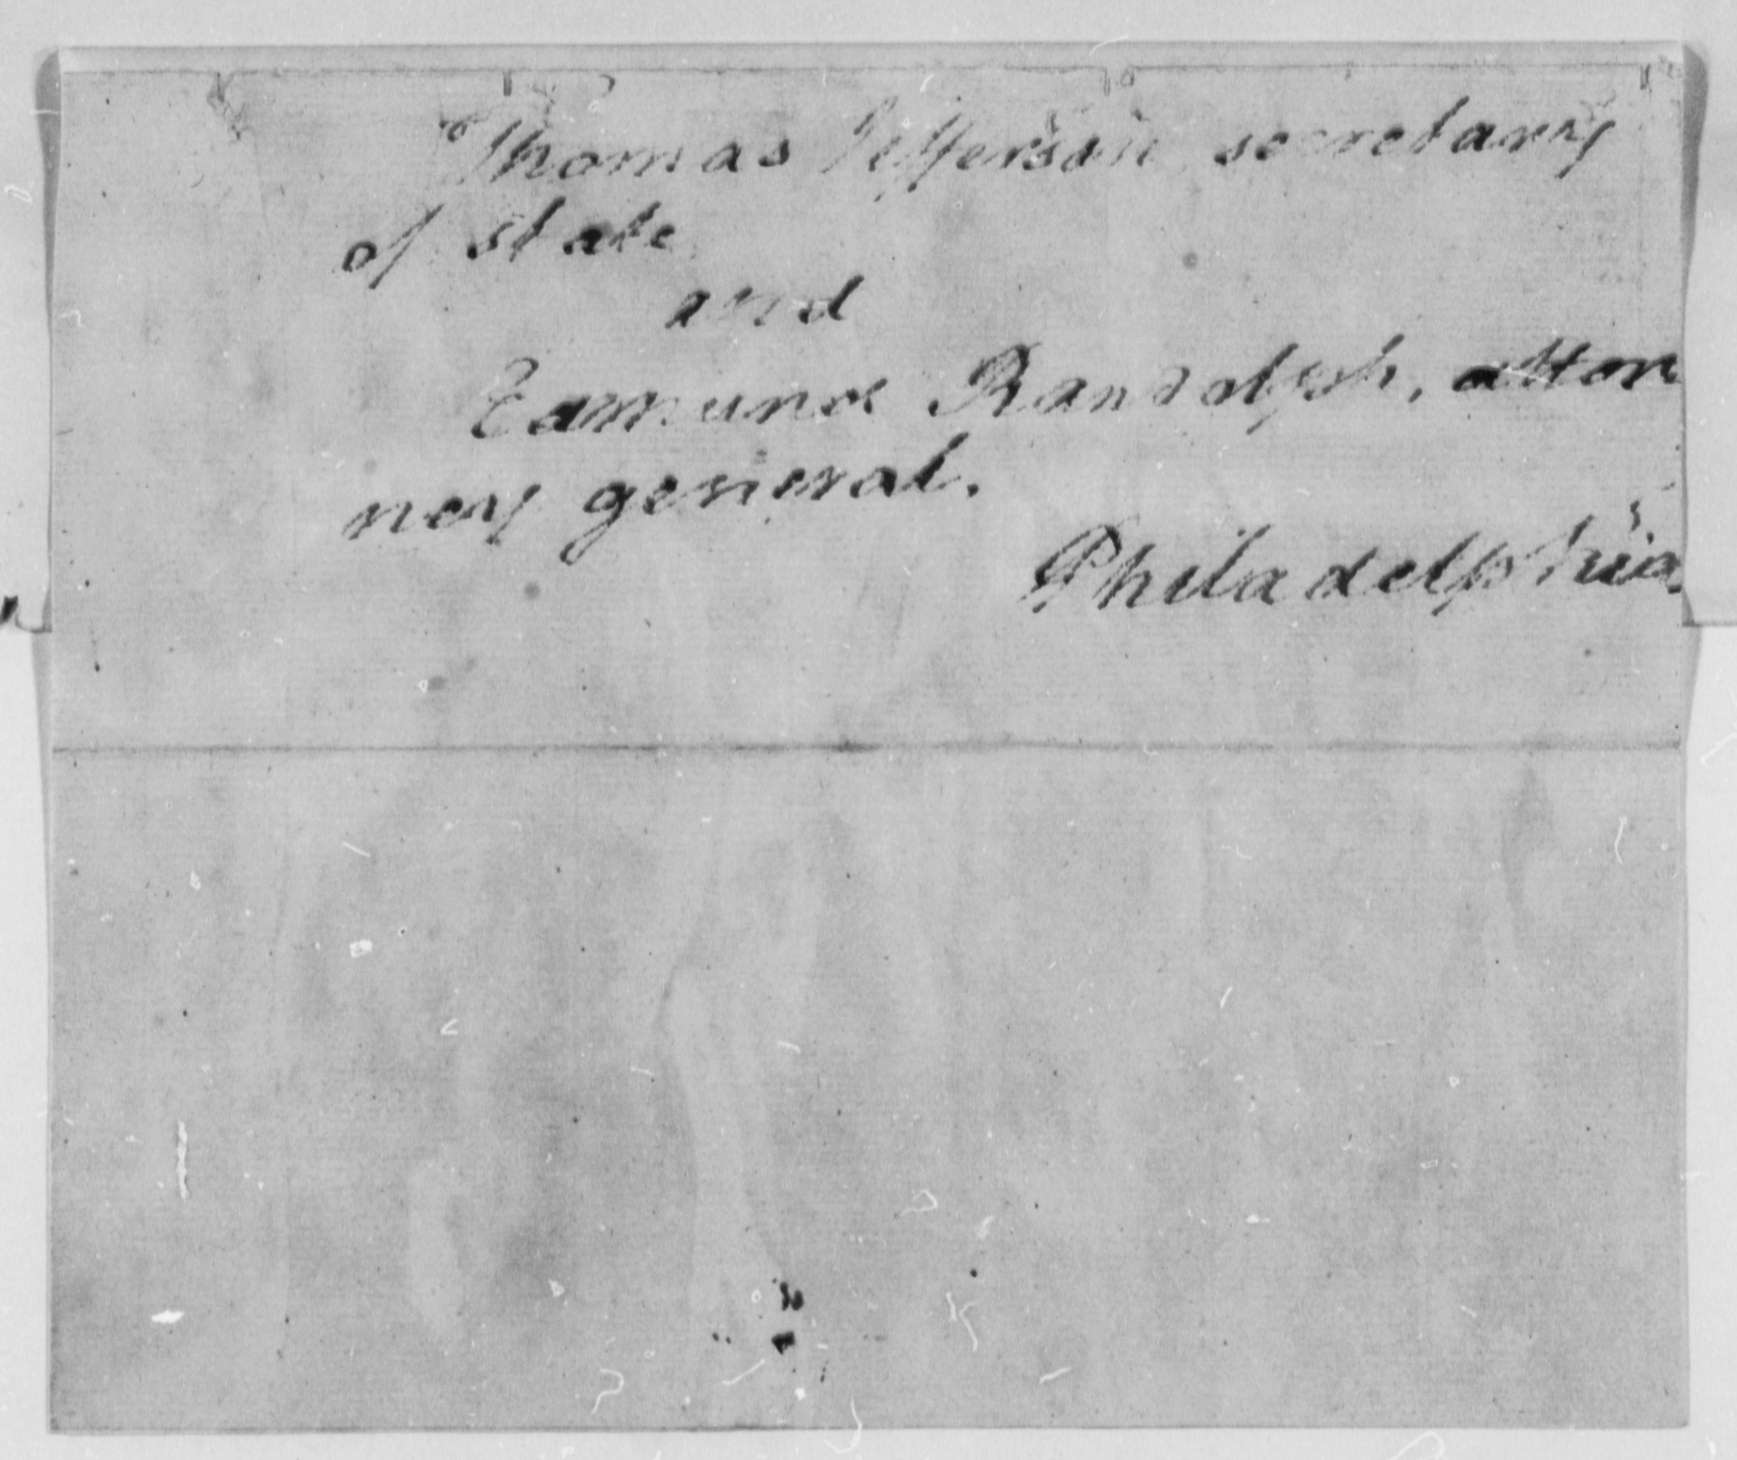 Thomas Jefferson secretary
of state
and
Edmund Randolph, attor
ney general.
Philadelphia.